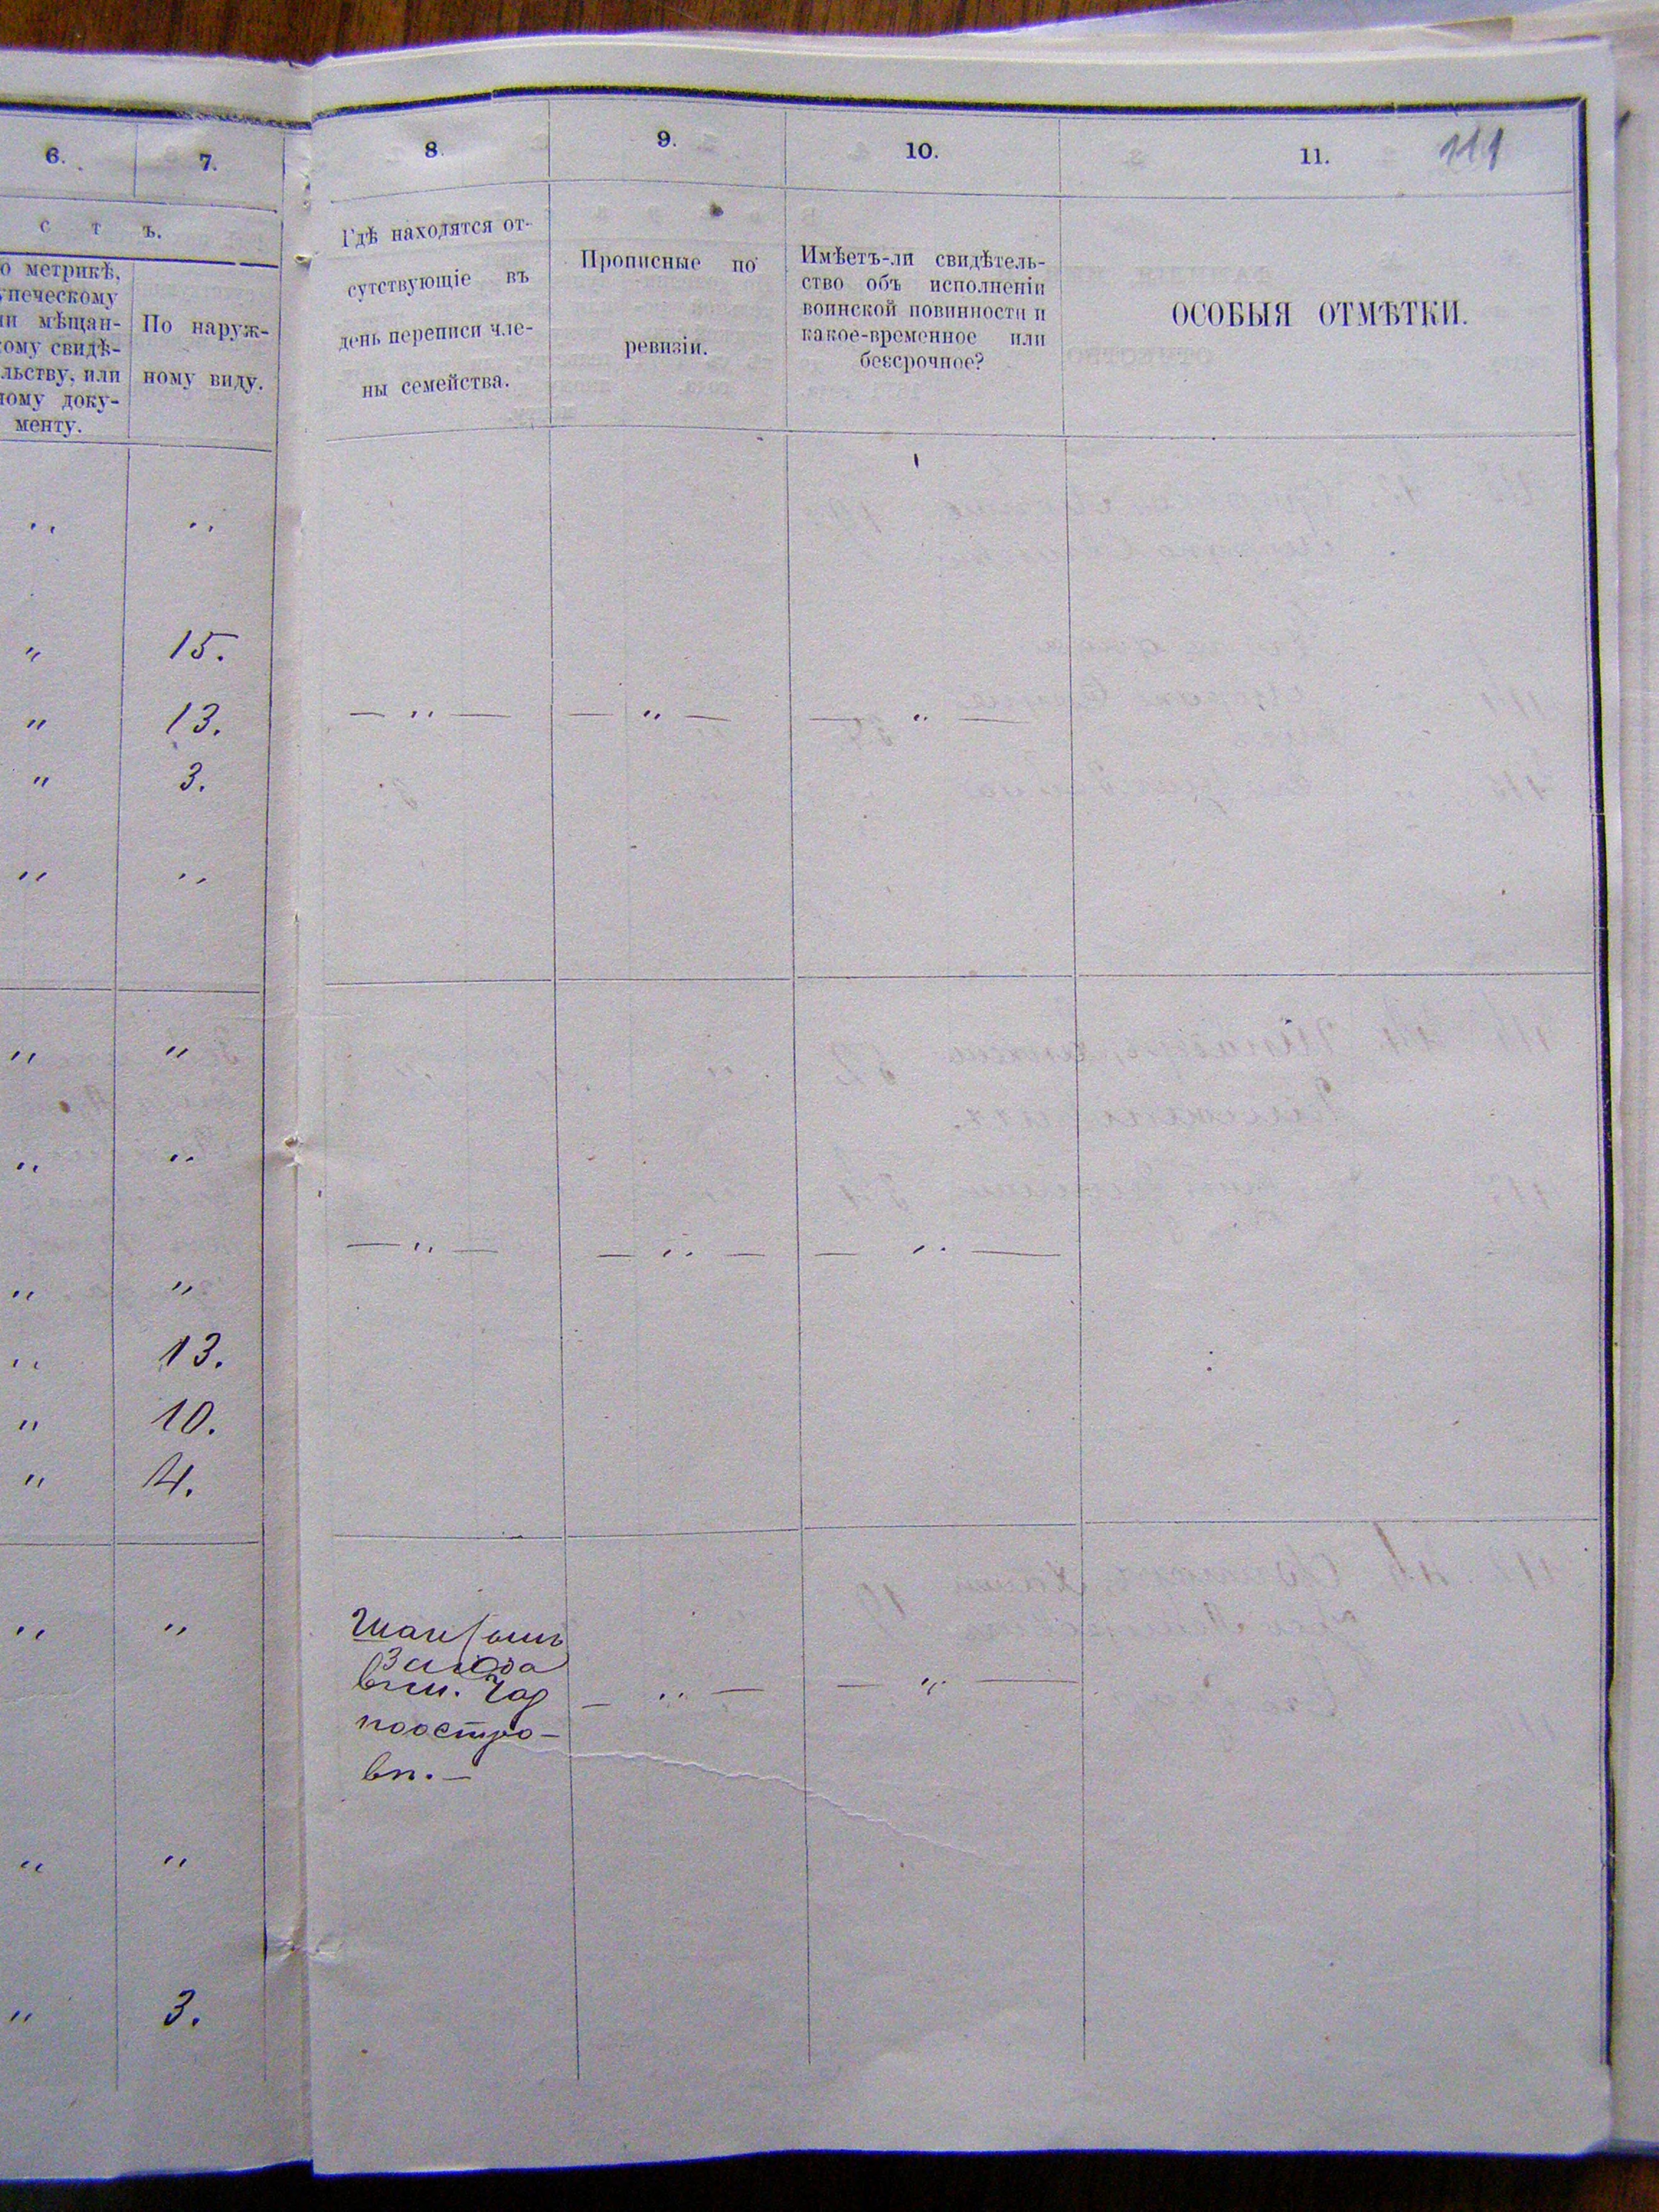 6.
7.
8.
9.
10.
11.
111
с т ъ.
о метрикѣ,
упеческому
ли мѣщан-
кому свидѣ-
льству, или
ному доку-
менту.
По наруж-
ному виду.
Гдѣ находятся от-
сутствующіе въ
день переписи чле-
ны семейства.
Прописные по
ревизіи.
Имѣетъ-ли свидѣтель-
ство объ исполненіи
воинской повинности и
какое-временное или
безсрочное?
ОСОБЫЯ ОТМѢТКИ.
„ „
„ 15.
„ 13.
— „ — — „ — — „ —
„ 3.
„ „
„ „
„ „
— „ — — „ — — „ —
„ „
„ 13.
„ 10.
„ 4.
„ „
— „ — — „ —
вп. —
„ „
„ 3.